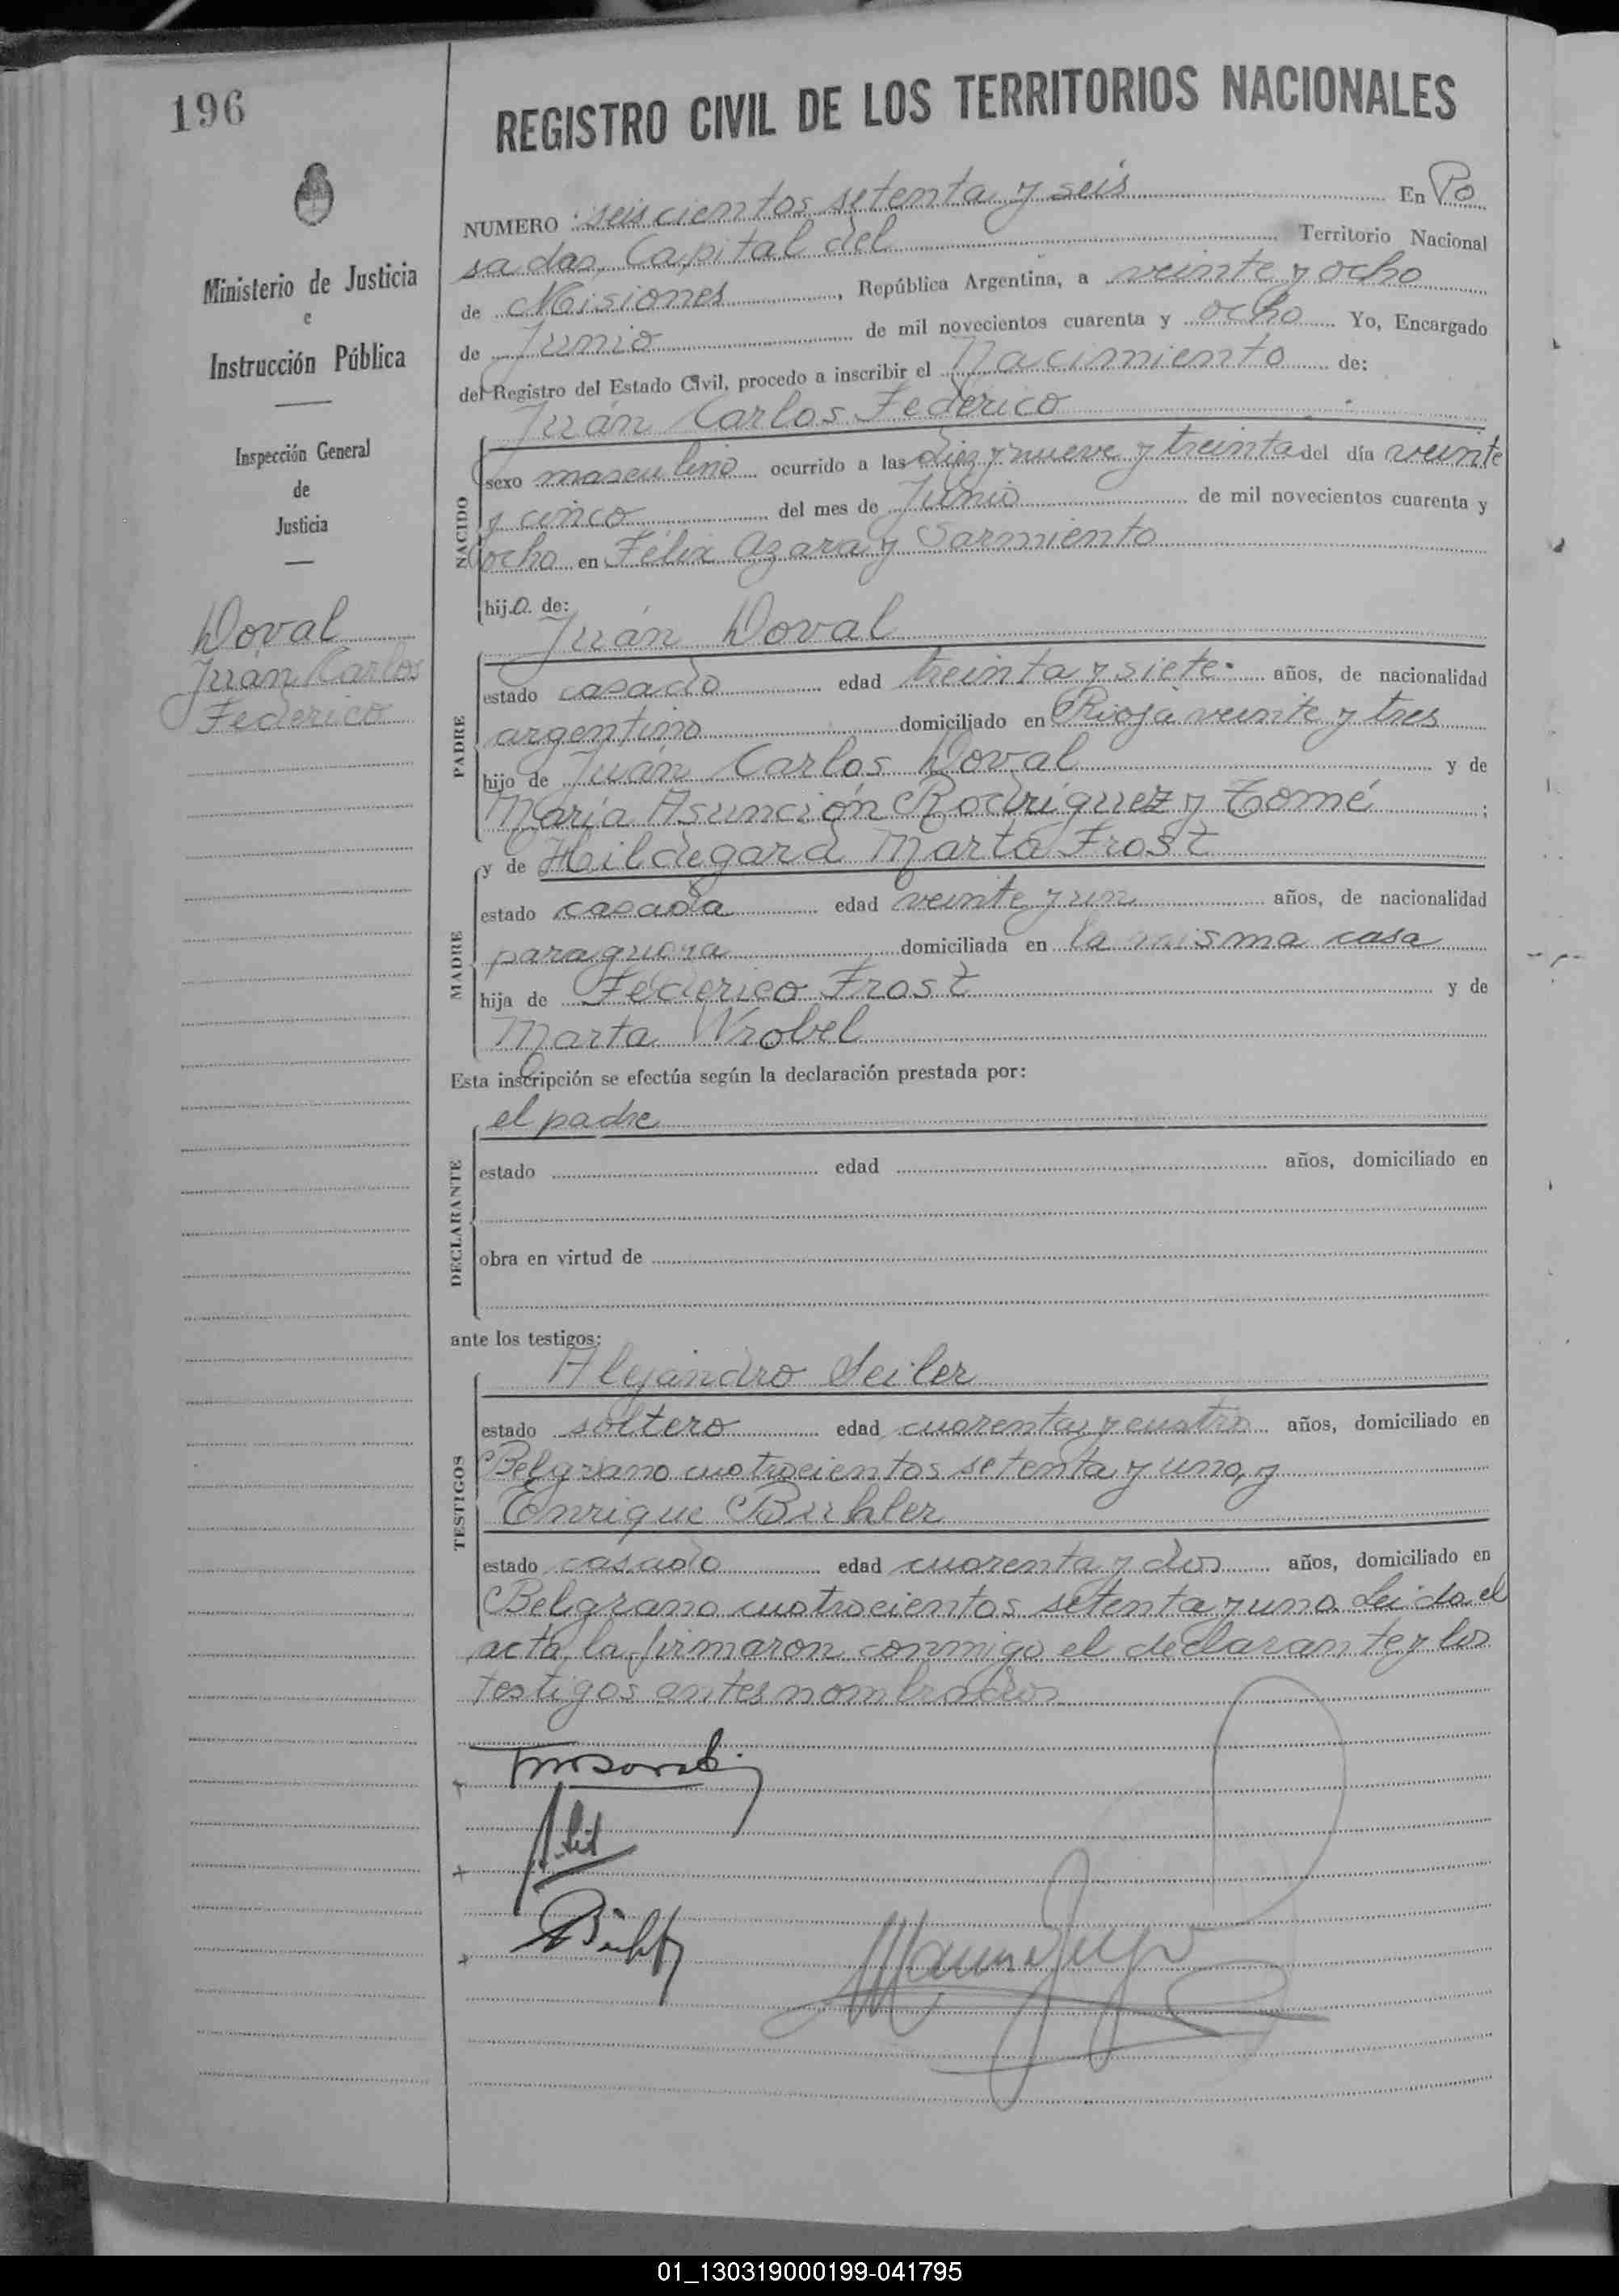 196
Ministerio de Justicia
e
Instrucción Pública
Inspección General
de
Justicia
Doval
Juán Carlos
Federico
REGISTRO CIVIL DE LOS TERRITORIOS NACIONALES
NUMERO seiscientos setenta y seis En Po
sadas, Capital del Territorio Nacional
de Misiones, República Argentina, a veinte y ocho
de Junio de mil novecientos cuarenta y ocho Yo, Encargado
del Registro del Estado Civil, procedo a inscribir el Nacimiento de:
Juán Carlos Federico
NACIDO
sexo masculino ocurrido a las diez y nueve y treinta del día veinte
y cinco del mes de Junio de mil novecientos cuarenta y
ocho en Félix Azara y Sarmiento
hijo de:
Juán Doval
PADRE
estado casado edad treinta y siete años, de nacionalidad
argentino domiciliado en Rioja veinte y tres
hijo de Juán Carlos Doval y de
María Asunción Rodríguez y Tomé ;
y de Hildegard Marta Frost
MADRE
estado casada edad veinte y un años, de nacionalidad
paraguaya domiciliada en la misma casa
hija de Federico Frost y de
Marta Wrobel
Esta inscripción se efectúa según la declaración prestada por:
el padre
DECLARANTE
estado edad años, domiciliado en
obra en virtud de
ante los testigos:
Alejandro Seiler
TESTIGOS
estado soltero edad cuarenta y cuatro años, domiciliado en
Belgrano cuatrocientos setenta y uno, y
Enrique Buhler
estado casado edad cuarenta y dos años, domiciliado en
Belgrano cuatrocientos setenta y uno. Leida el
acta, la firmaron conmigo el declarante y los
testigos antes nombrados
01_130319000199-041795